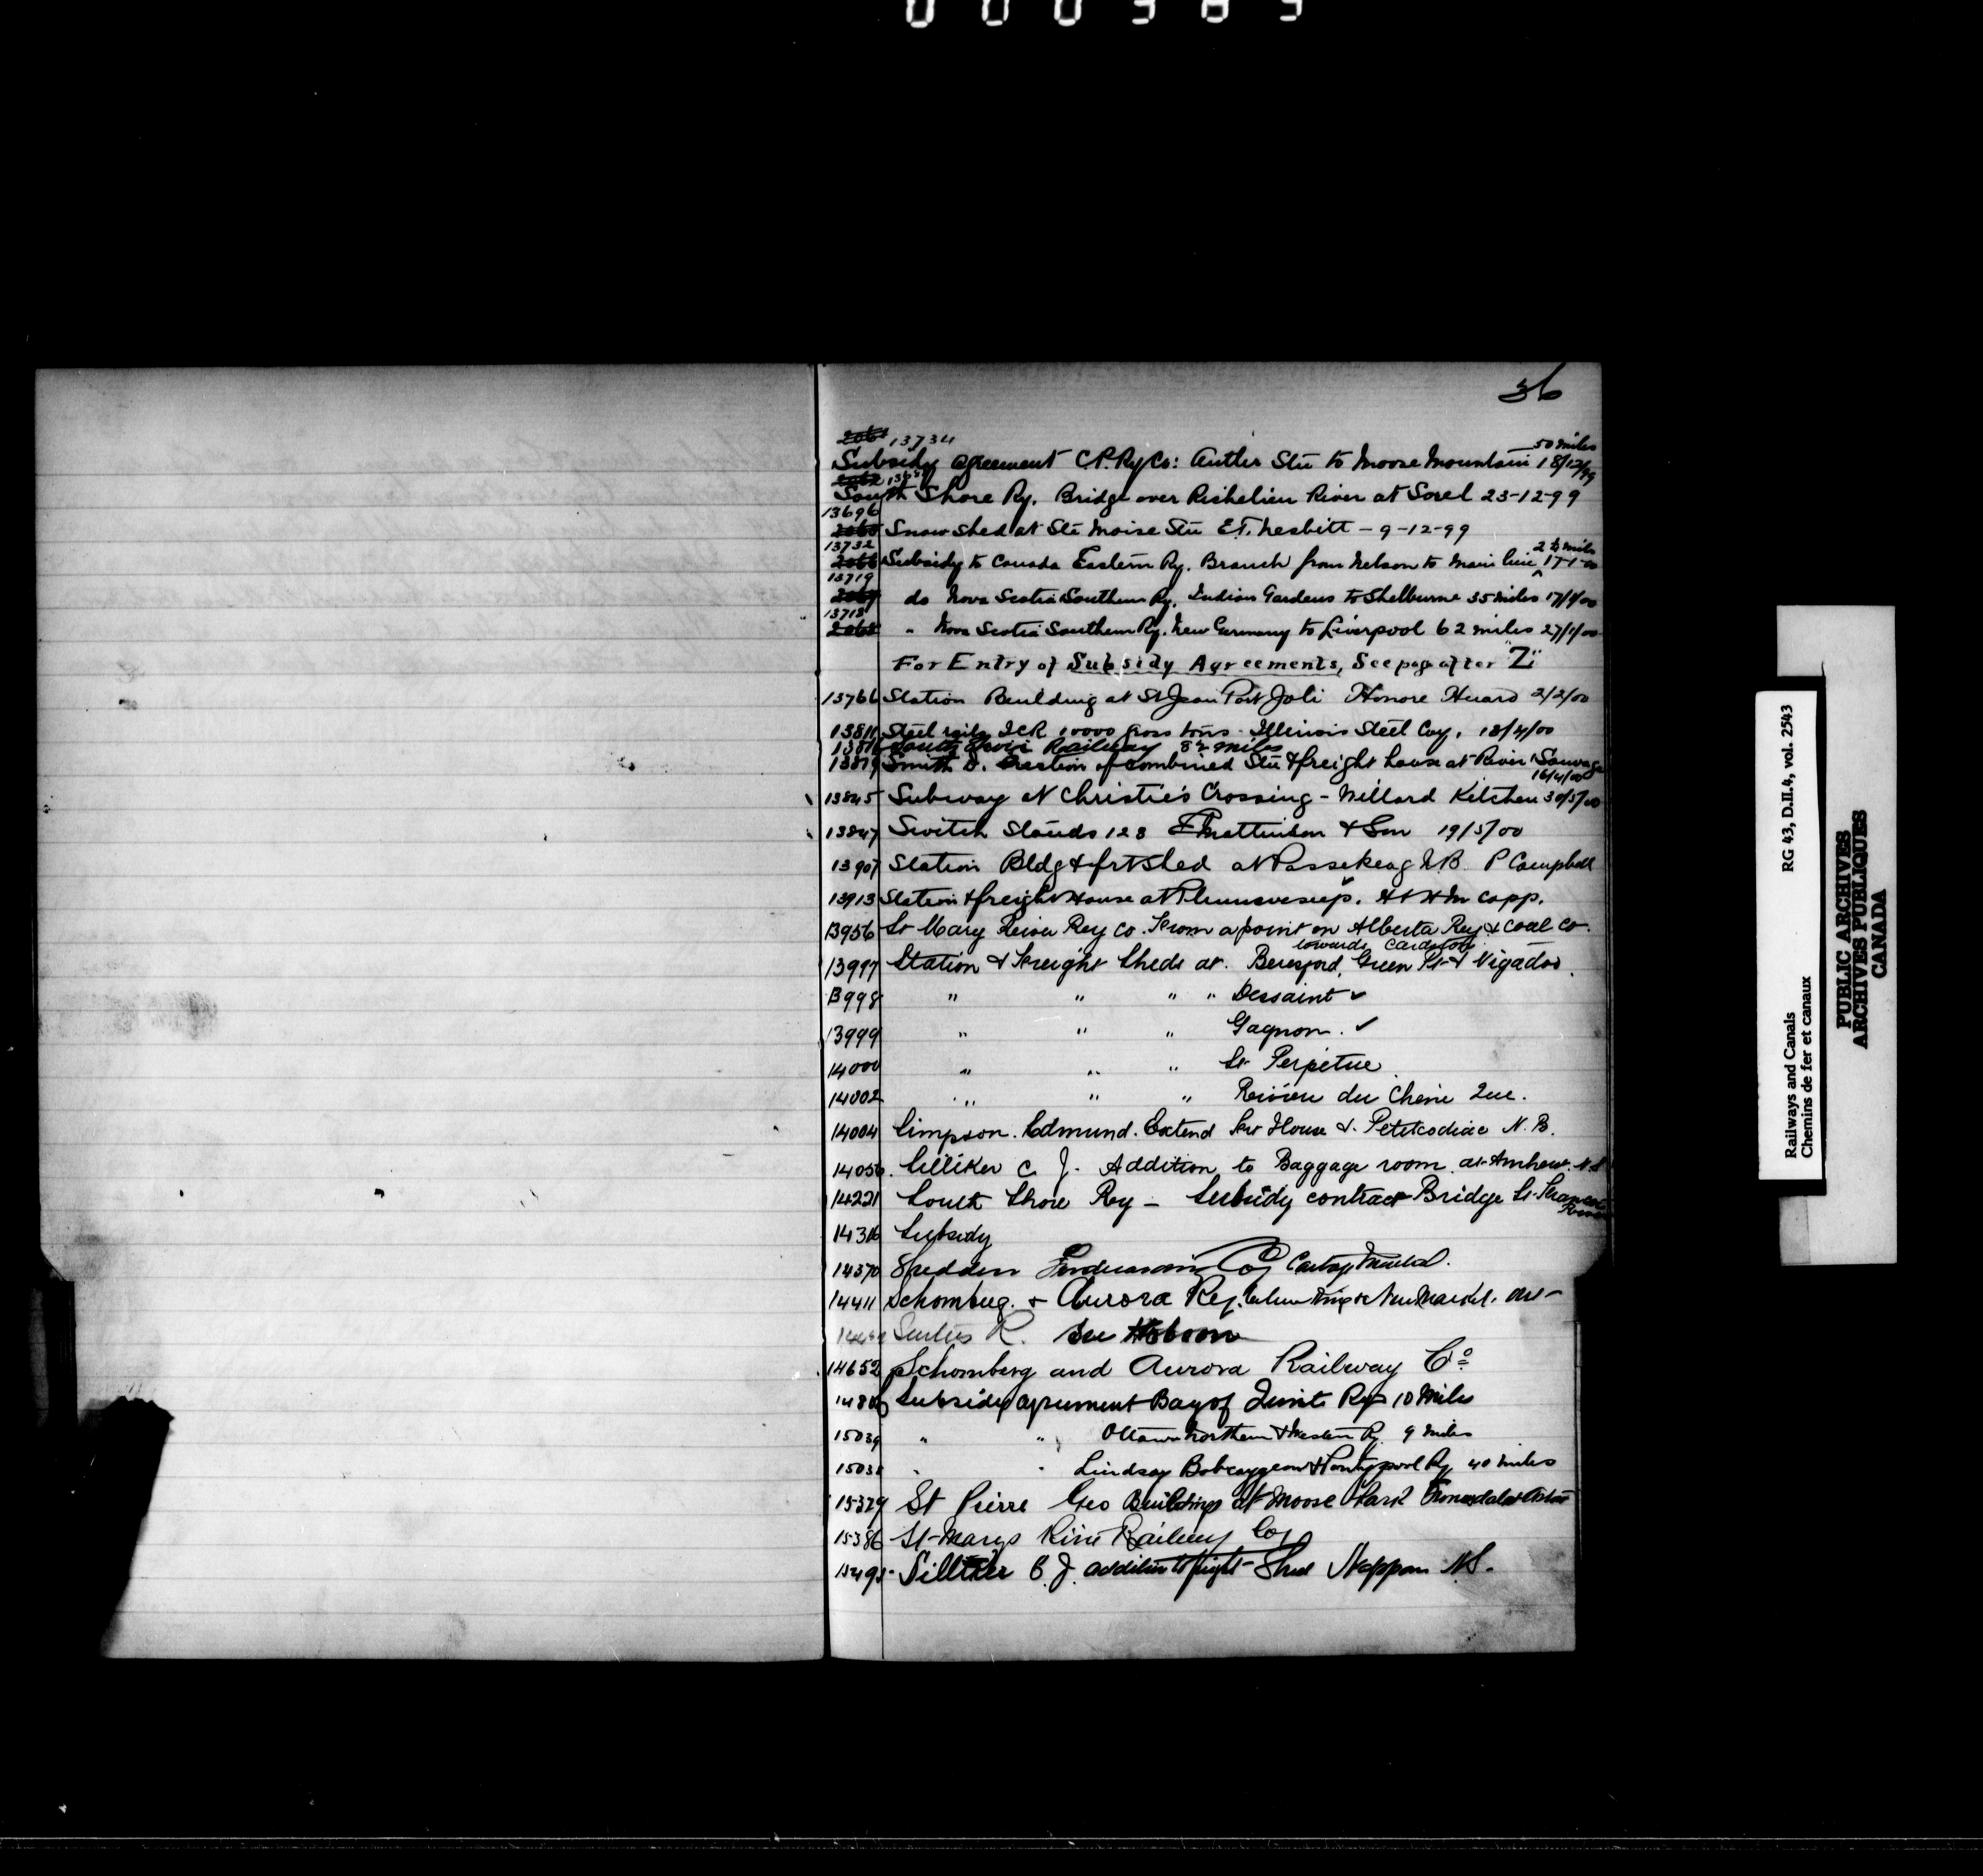 36
13734
50 miles
Subsidy agreement C.P. Ry Co: Antler Stn to Moose Mountain 18/12/99
South Shore Ry. Bridge over Richelieu River at Sorel 23-12-99
13696
Snow Shed at Ste Moise Stn E.T. Nesbitt - 9-12-99
13732
2½ miles
Subsidy to Canada Eastern Ry. Branch from Nelson to Main line 17-1-00
13719
do Nova Scotia Southern Ry. Indian Gardens to Shelburne 35 miles 17/1/00
13718
" Nova Scotia Southern Ry. New Germany to Liverpool 62 miles 27/1/00
For Entry of Subsidy Agreements, See page after "Z"
13766 Station Building at St Jean Port Joli Honore Huard 2/2/00
13811 Steel rails ICR 10000 Gross tons - Illinois Steel Coy. 18/4/00
South Shore Railway 82 miles
13819 Smith D. Erection of combined Stn & freight house at River Sauvage
16/4/00
13845 Subway at Christie's Crossing - Willard Kitchen 30/5/00
13847 Switch Stands 128 Mattinson & Son 19/5/00
13907 Station Bldg & frt Shed at Passekeag N.B. P Campbell
13913 Station & freight House at Plumweseep. H & H M Copp.
13956 St Mary River Ry Co. From a point on Alberta Ry & Coal Co.
towards Cardston
13997 Station & Freight Sheds at. Beresford, Green Pt & Nigadoo.
13998 " " " " Dessaint ✓
13999 " " " Gagnon. ✓
14000 " " " St Perpetue
14002 " " " Riviere du Chene Que.
14004 Simpson. Edmund. Extend Frt House &. Petitcodiac N.B.
14056. Silliker C J. Addition to Baggage room at Amherst. N.S
14221 South Shore Ry - Subsidy contract Bridge St. Francois
River
14316 Subsidy
14370 Shedden Forwarding Coy Cartage Montreal.
14411 Schomberg. & Aurora Ry. between King & Newmarket. Ont -
R. See Hobson
14652 Schomberg and Aurora Railway Co
Subsidy agreement Bay of Quinte Ry 10 Miles
15039 " " Ottawa Northern & Western Ry 9 miles
15038 " " Lindsay Bobcaygeon & Pontypool Ry 40 miles
15379 St Pierre Geo Buildings at Moose Park
15386 St-Marys River Railway Coy
Silliker C. J. addition to freight Shed Nappan N.S.
RG 43, D.II.4, vol. 2543
Railways and Canals
Chemins de fer et canaux
PUBLIC ARCHIVES
ARCHIVES PUBLIQUES
CANADA